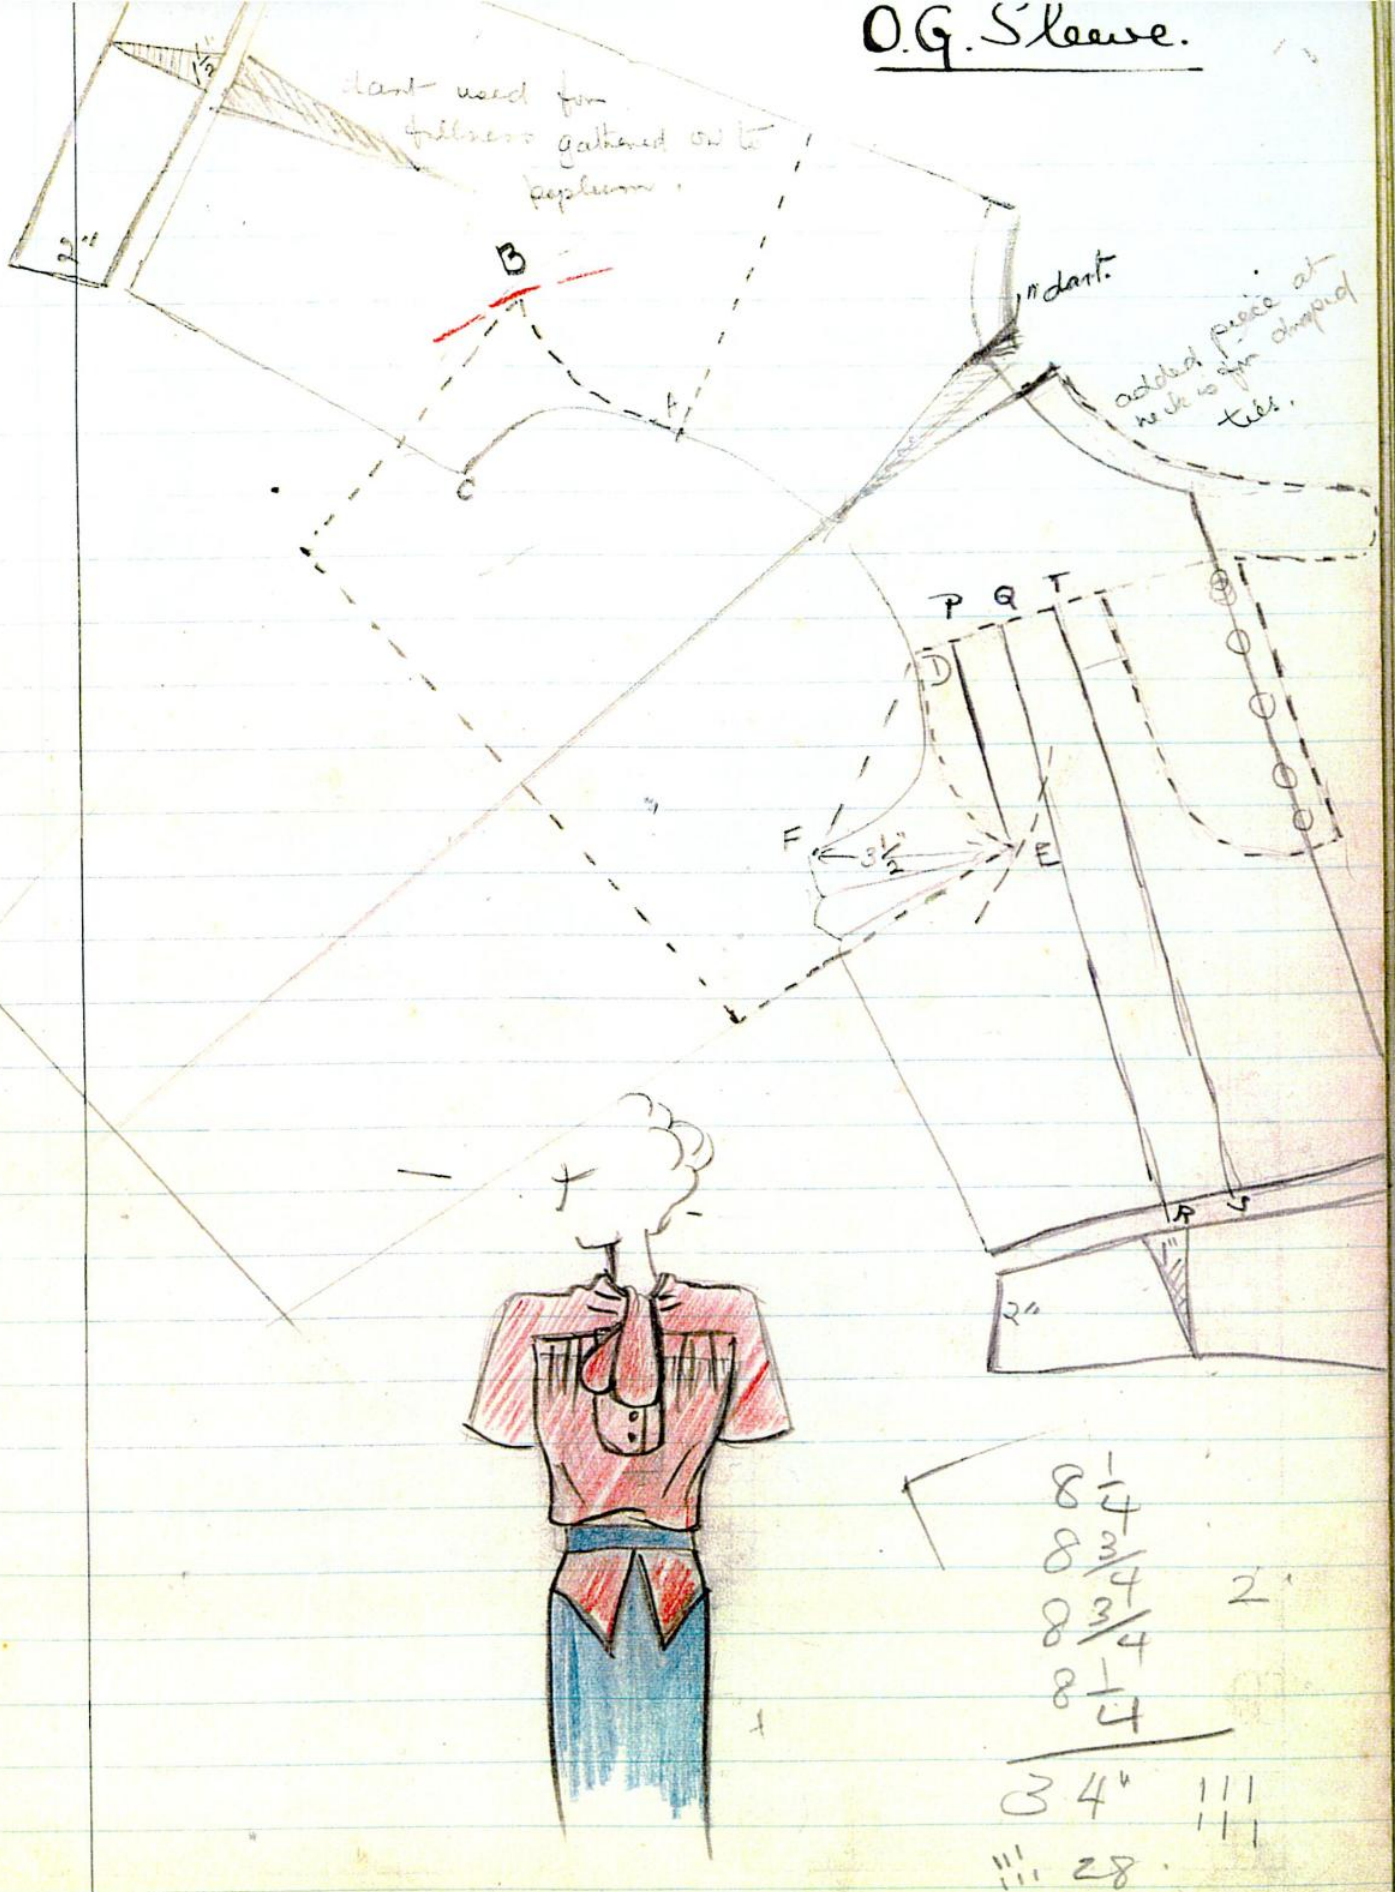 O.G. Sleeve.
1½"
dart used for
fullness gathered on to
peplum.
2"
B
1" dart.
added piece at
neck is for draped
ties.
A
C
P Q T
D
F
3½"
E
R S
1"
2"
8 1/4
8 3/4
2
8 3/4
8 1/4
34"
28